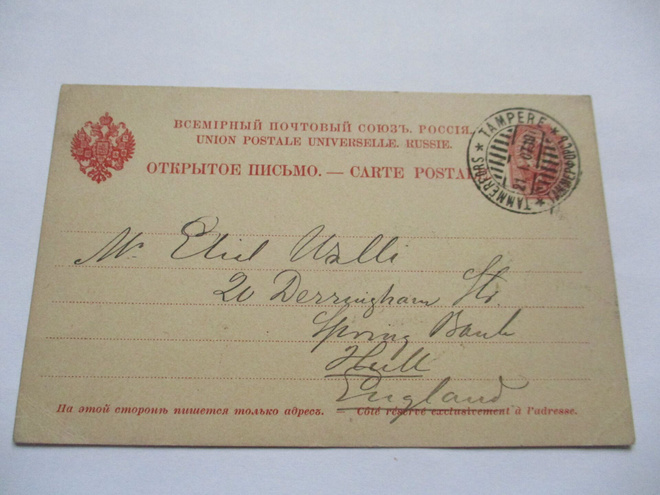 ВСЕМІРНЫЙ ПОЧТОВЫЙ СОЮЗЪ. РОССІЯ.
UNION POSTALE UNIVERSELLE. RUSSIE.
ОТКРЫТОЕ ПИСЬМО. — CARTE POSTAL
TAMPERE
TAMMERFORS
ТАММЕРФОРСЪ
21. I. 07
Mr Eliel Walli
20 Derringham Str.
Spring Bank
Hull
England
На этой сторонѣ пишется только адресъ. Côté réservé exclusivement à l'adresse.